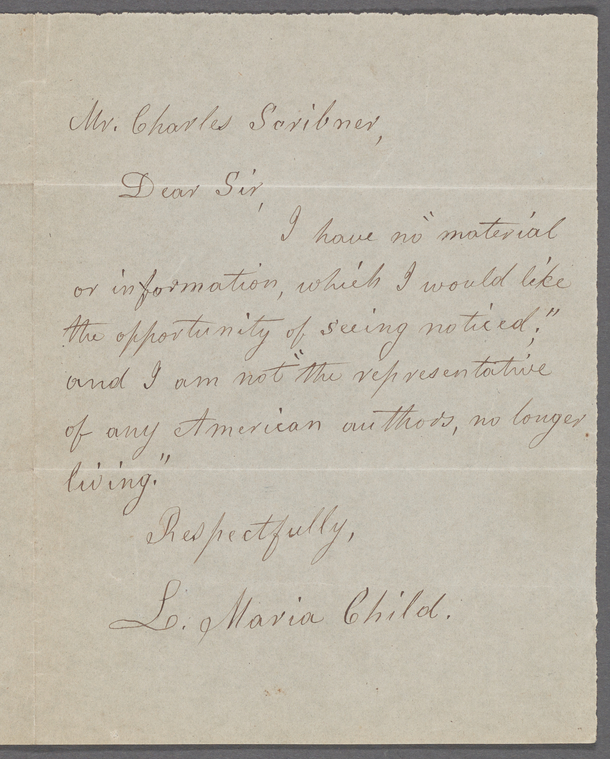 Mr. Charles Scribner,
Dear Sir,
I have no "material
or information, which I would like
the opportunity of seeing noticed;"
and I am not "the representative
of any American authors, no longer
living."
Respectfully,
L. Maria Child.